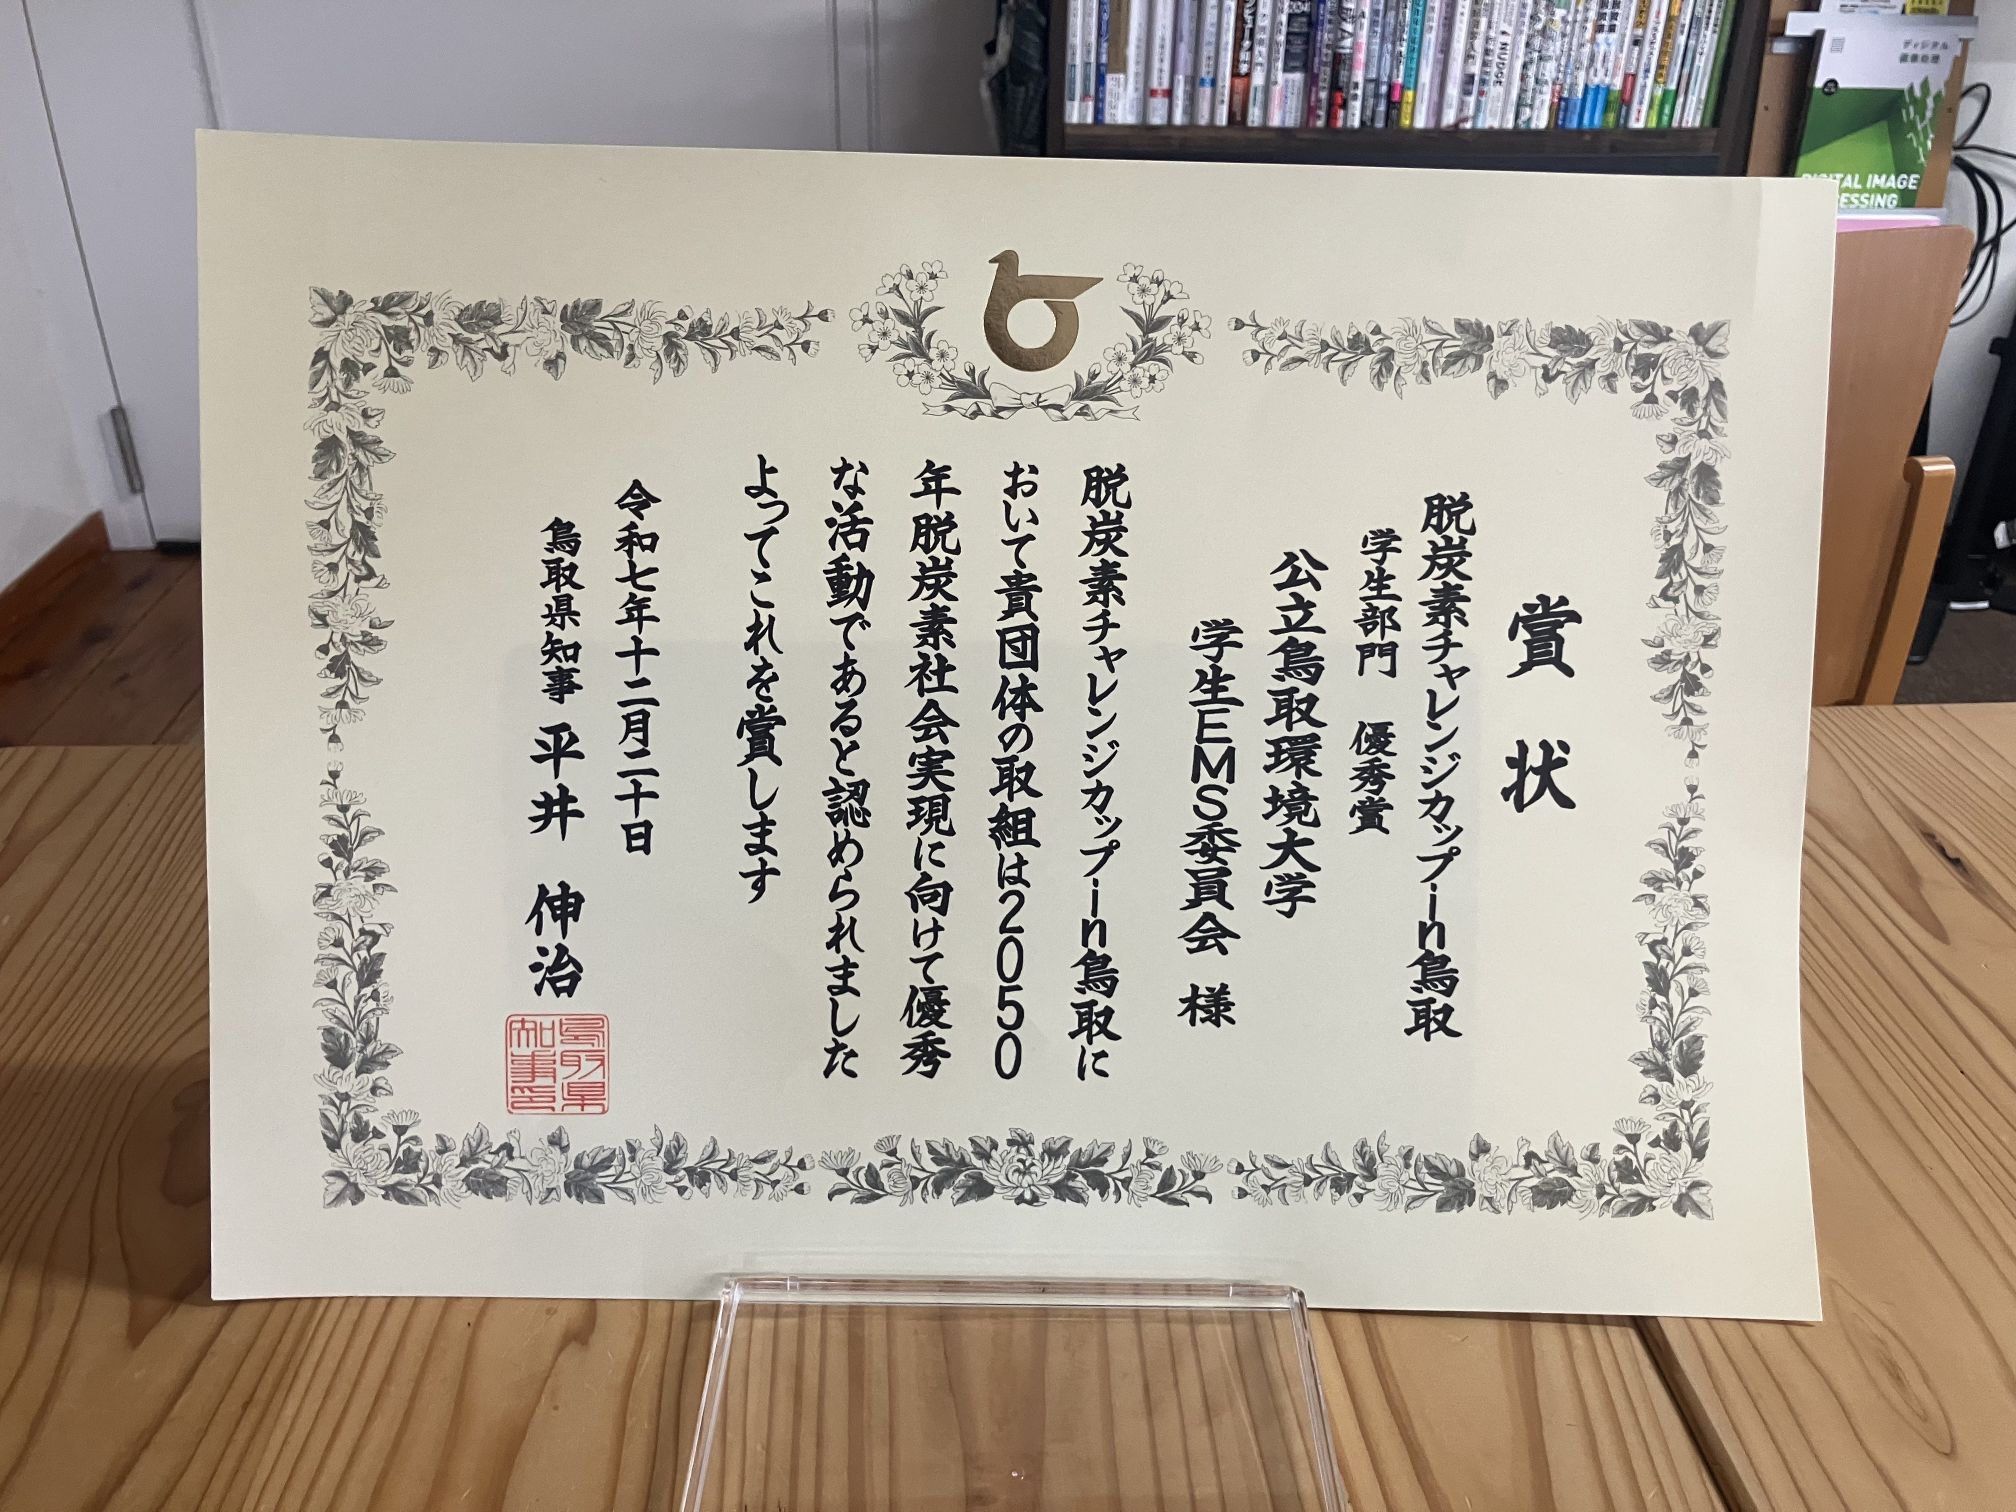 賞状
脱炭素チャレンジカップin鳥取
学生部門 優秀賞
公立鳥取環境大学
学生EMS委員会 様
脱炭素チャレンジカップin鳥取に
おいて貴団体の取組は2050
年脱炭素社会実現に向けて優秀
な活動であると認められました
よってこれを賞します
令和七年十二月二十日
鳥取県知事 平井 伸治
鳥取県
知事印
ディジタル
画像処理
DIGITAL IMAGE
NUDGE